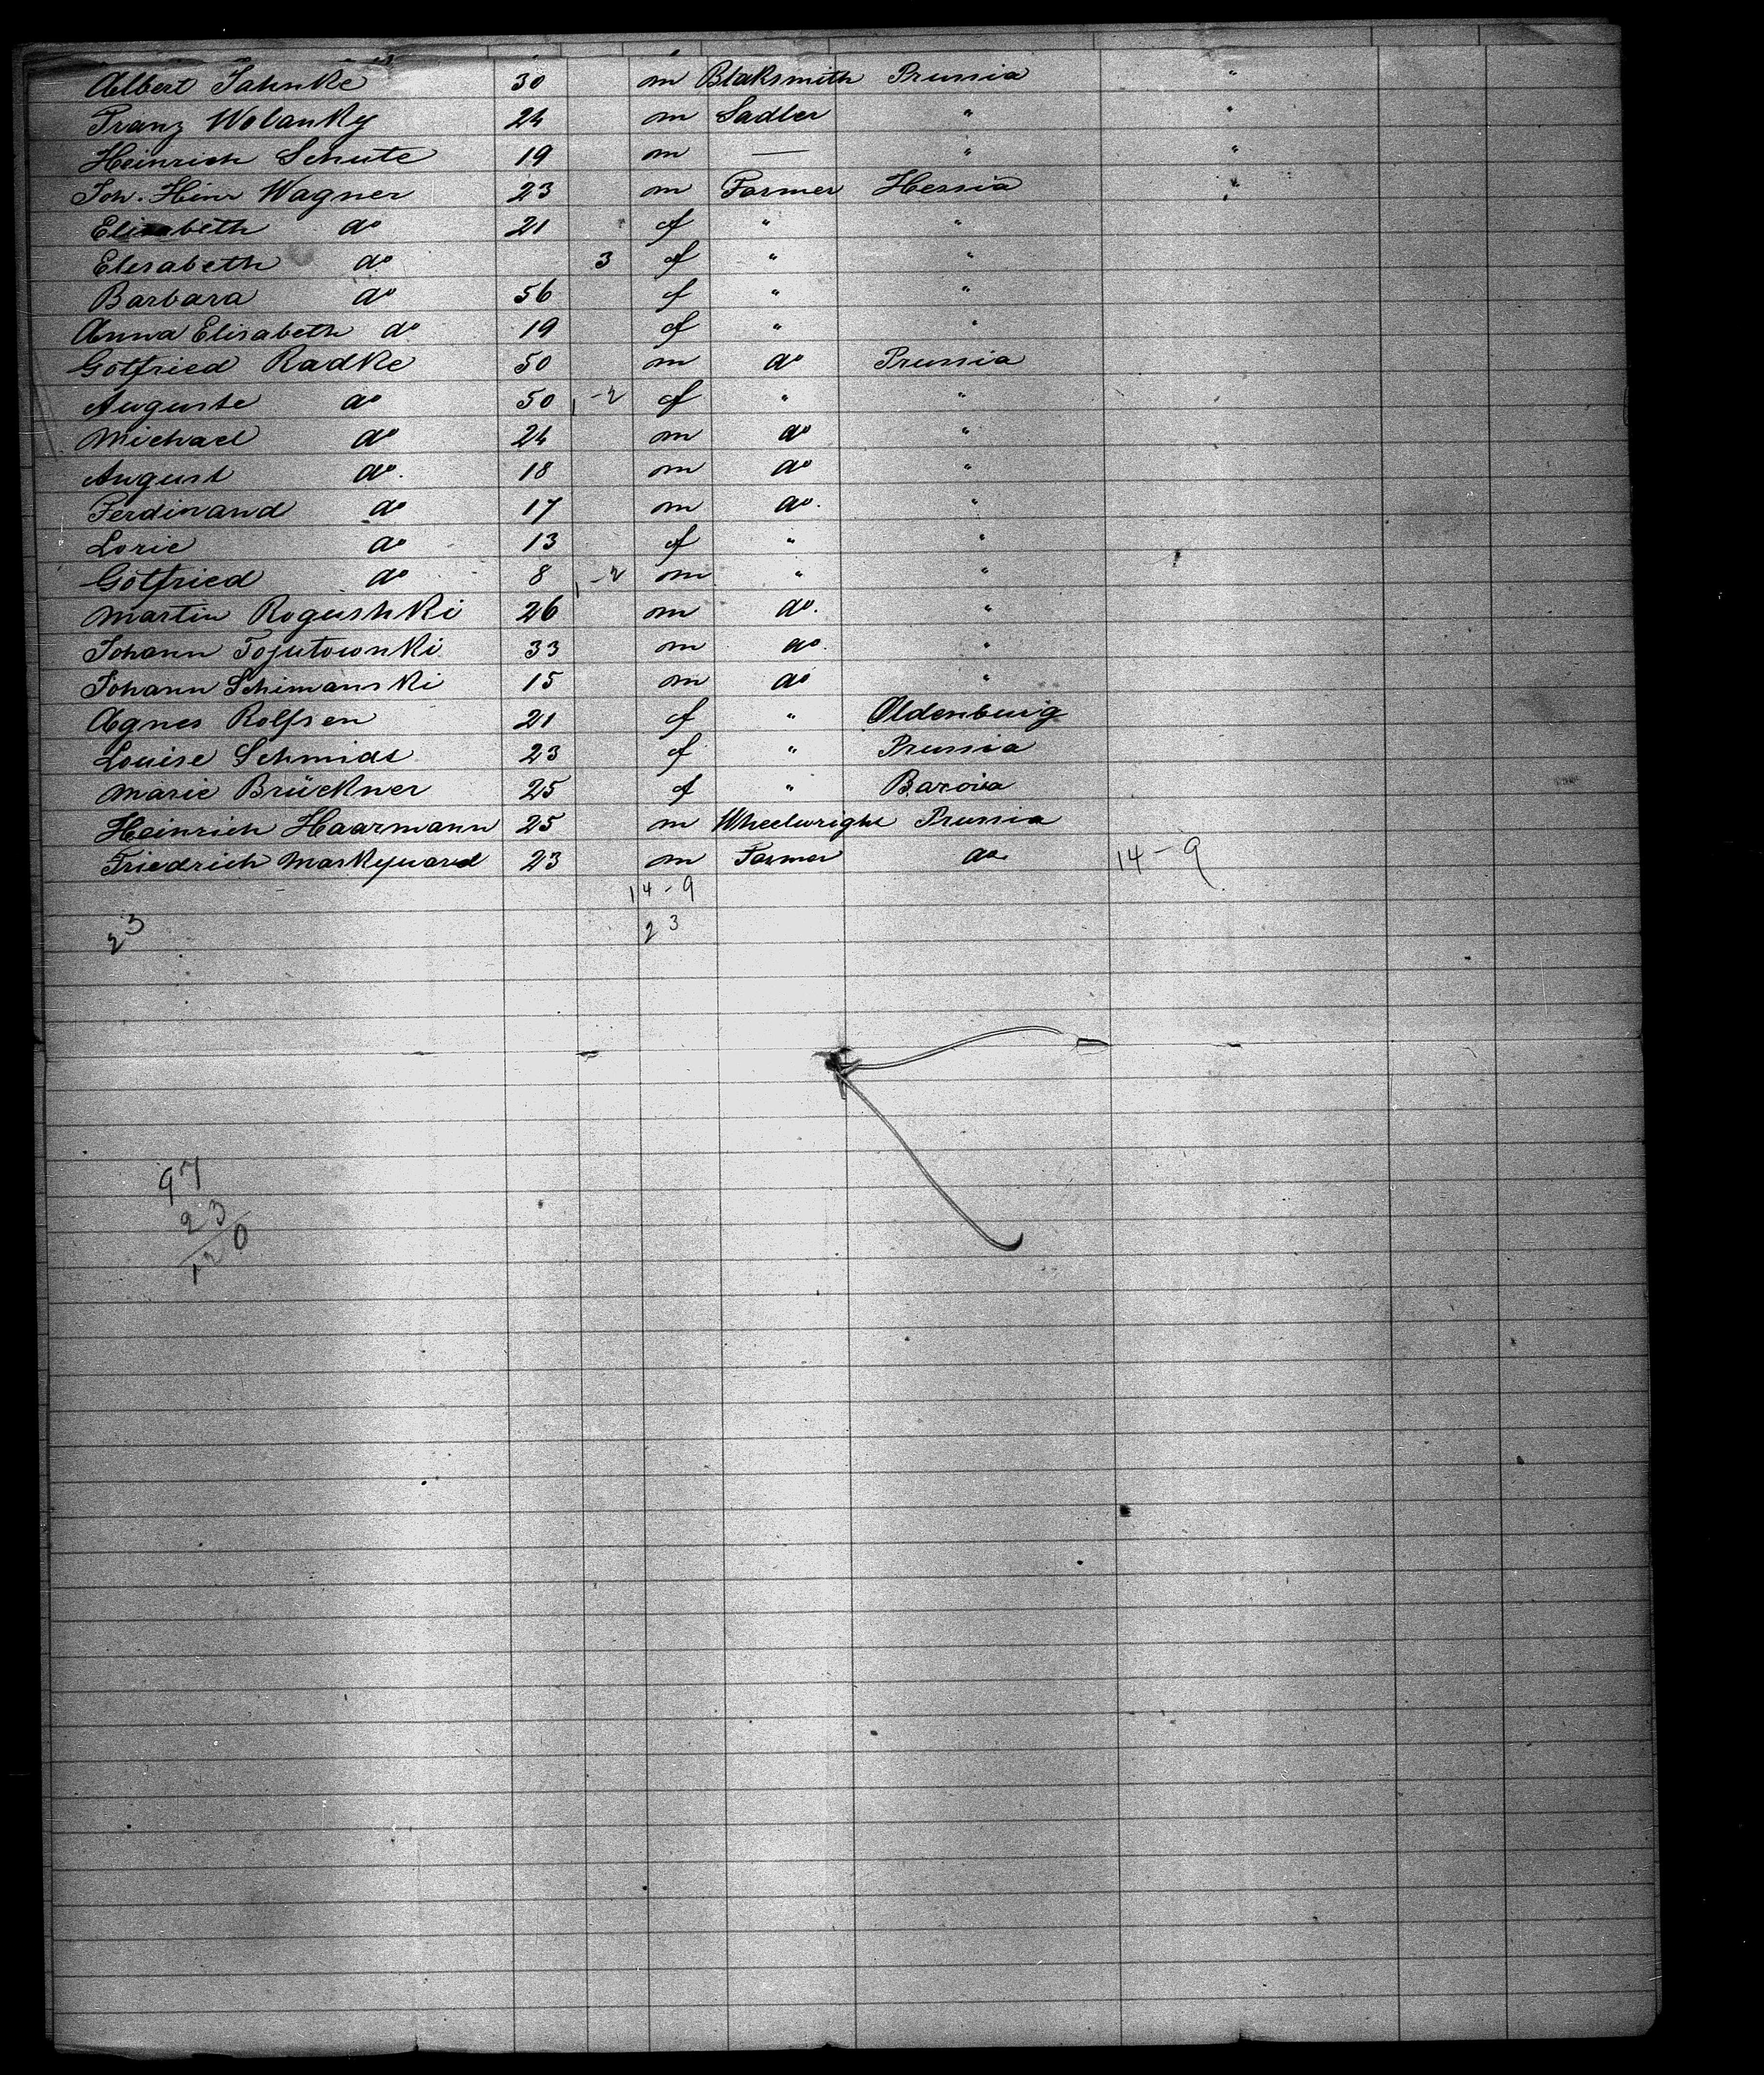 Albert Jahnke 30 m Blaksmith Prussia "
Franz Wolanky 24 m Sadler " "
Heinrich Schute 19 m — " "
Joh. Hinr Wagner 23 m Farmer Hessia "
Elisabeth do 21 f " "
Elisabeth do 3 f " "
Barbara do 56 f " "
Anna Elisabeth do 19 f " "
Gotfried Radke 50 m do Prussia
Auguste do 50 1-2 f " "
Michael do 24 m do "
August do. 18 m do "
Ferdinand do 17 m do. "
Lorie do 13 f " "
Gotfried do 8 1-2 m " "
Martin Rogushki 26 m do. "
Johann 33 m do. "
Johann Schimanski 15 m do "
Agnes Rolfsen 21 f " Oldenburg
Louise Schmidt 23 f " Prussia
Marie Brückner 25 f " Bavoia
Heinrich Haarmann 25 m Wheelwright Prussia
Friedrich Markquard 23 m Farmer do. 14-9
14-9
23 23
97
23
120